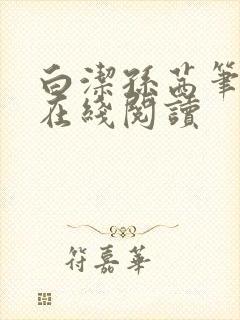 白潔孫茜筆
在綫閱讀
符嘉華